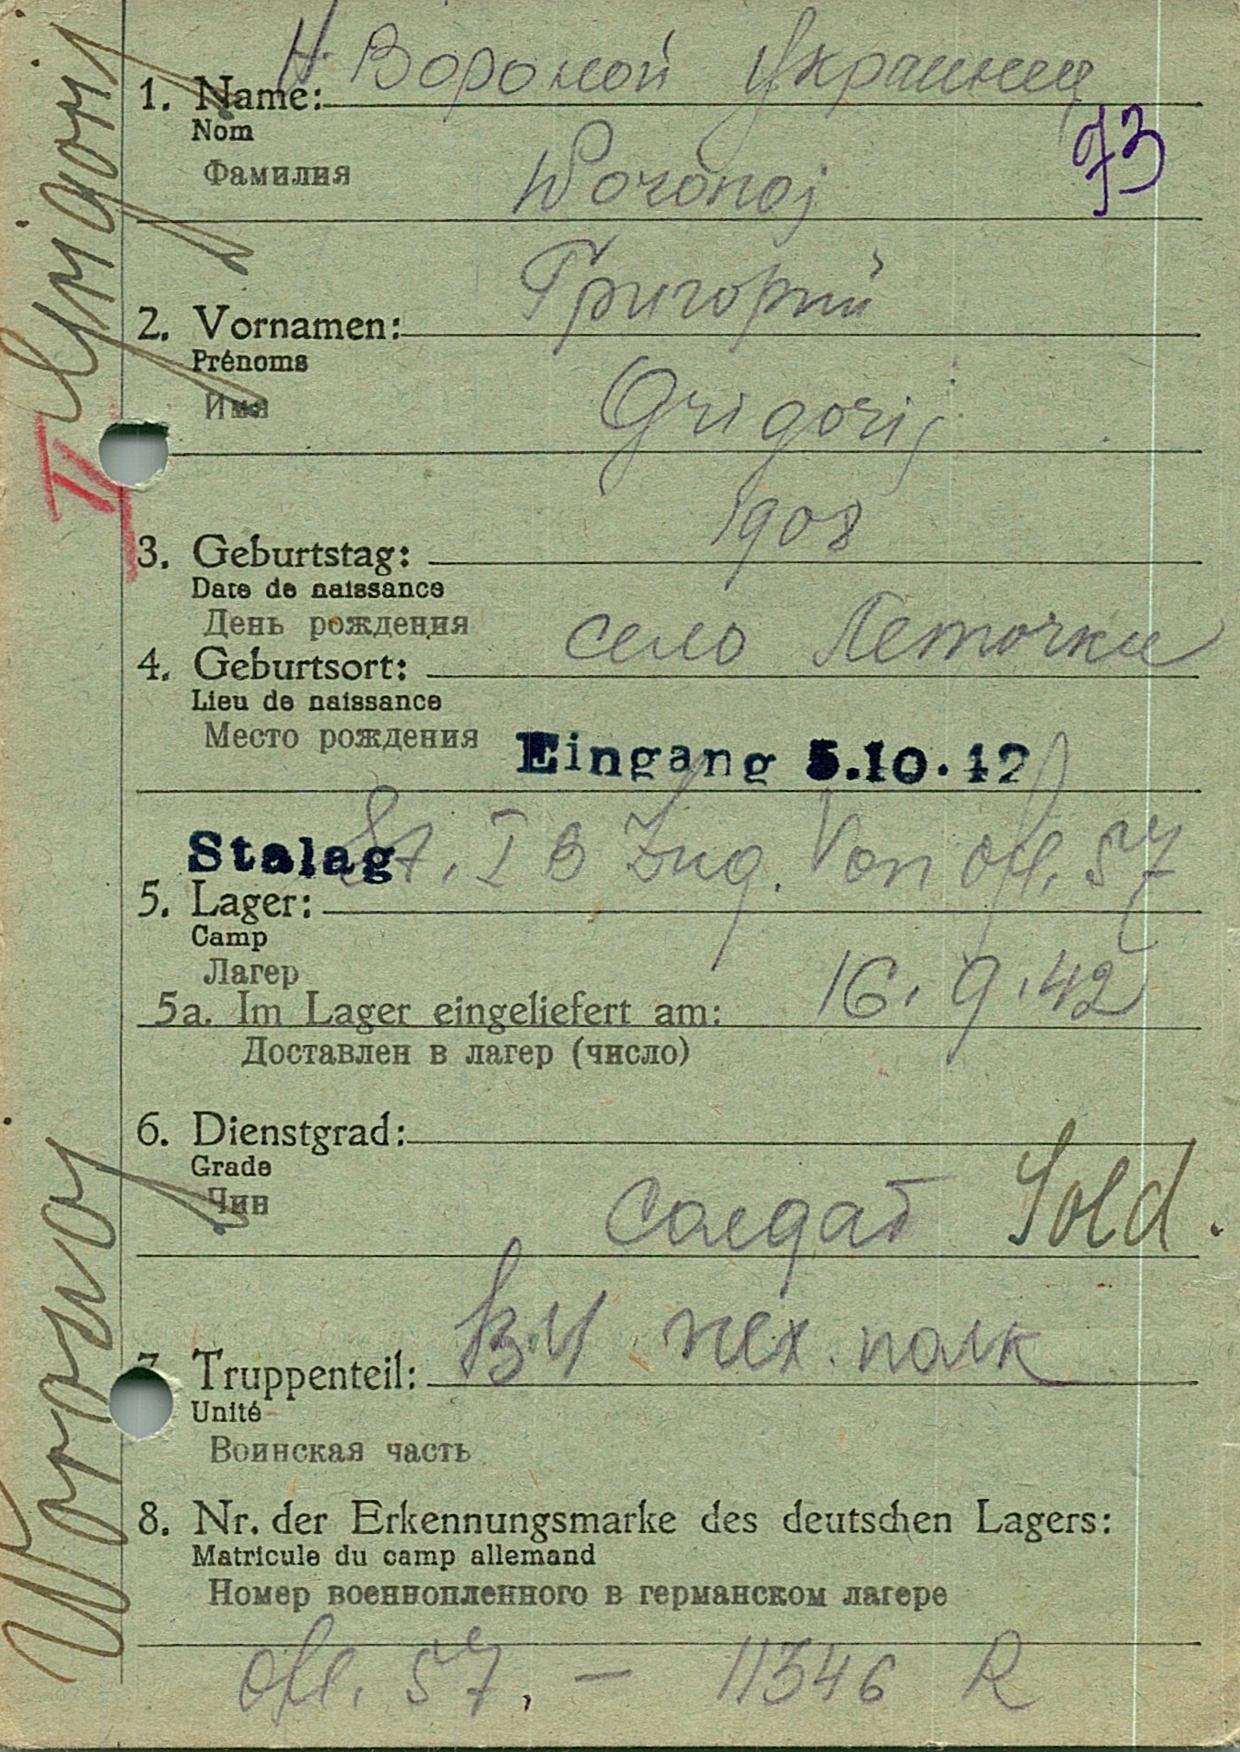 Вороной Украинец
1. Name:
Nom
73
Фамилия
Woronoj
Григорий
2. Vornamen:
Prénoms
Имя
Grigorij
II
1908
3. Geburtstag:
Date de naissance
День рождения
село Леточки
4. Geburtsort:
Lieu de naissance
Место рождения
Eingang 5.10.42
Stalag
St. I B Zug. Von Ofl. 57
5. Lager:
Camp
Лагер
16.9.42
5a. Im Lager eingeliefert am:
Доставлен в лагер (число)
6. Dienstgrad:
Grade
Чин
солдат Sold.
пех. полк
7. Truppenteil:
Unité
Воинская часть
8. Nr. der Erkennungsmarke des deutschen Lagers:
Matricule du camp allemand
Номер военнопленного в германском лагере
Ofl. 57. — 11346 R
Woronoj Grigorij